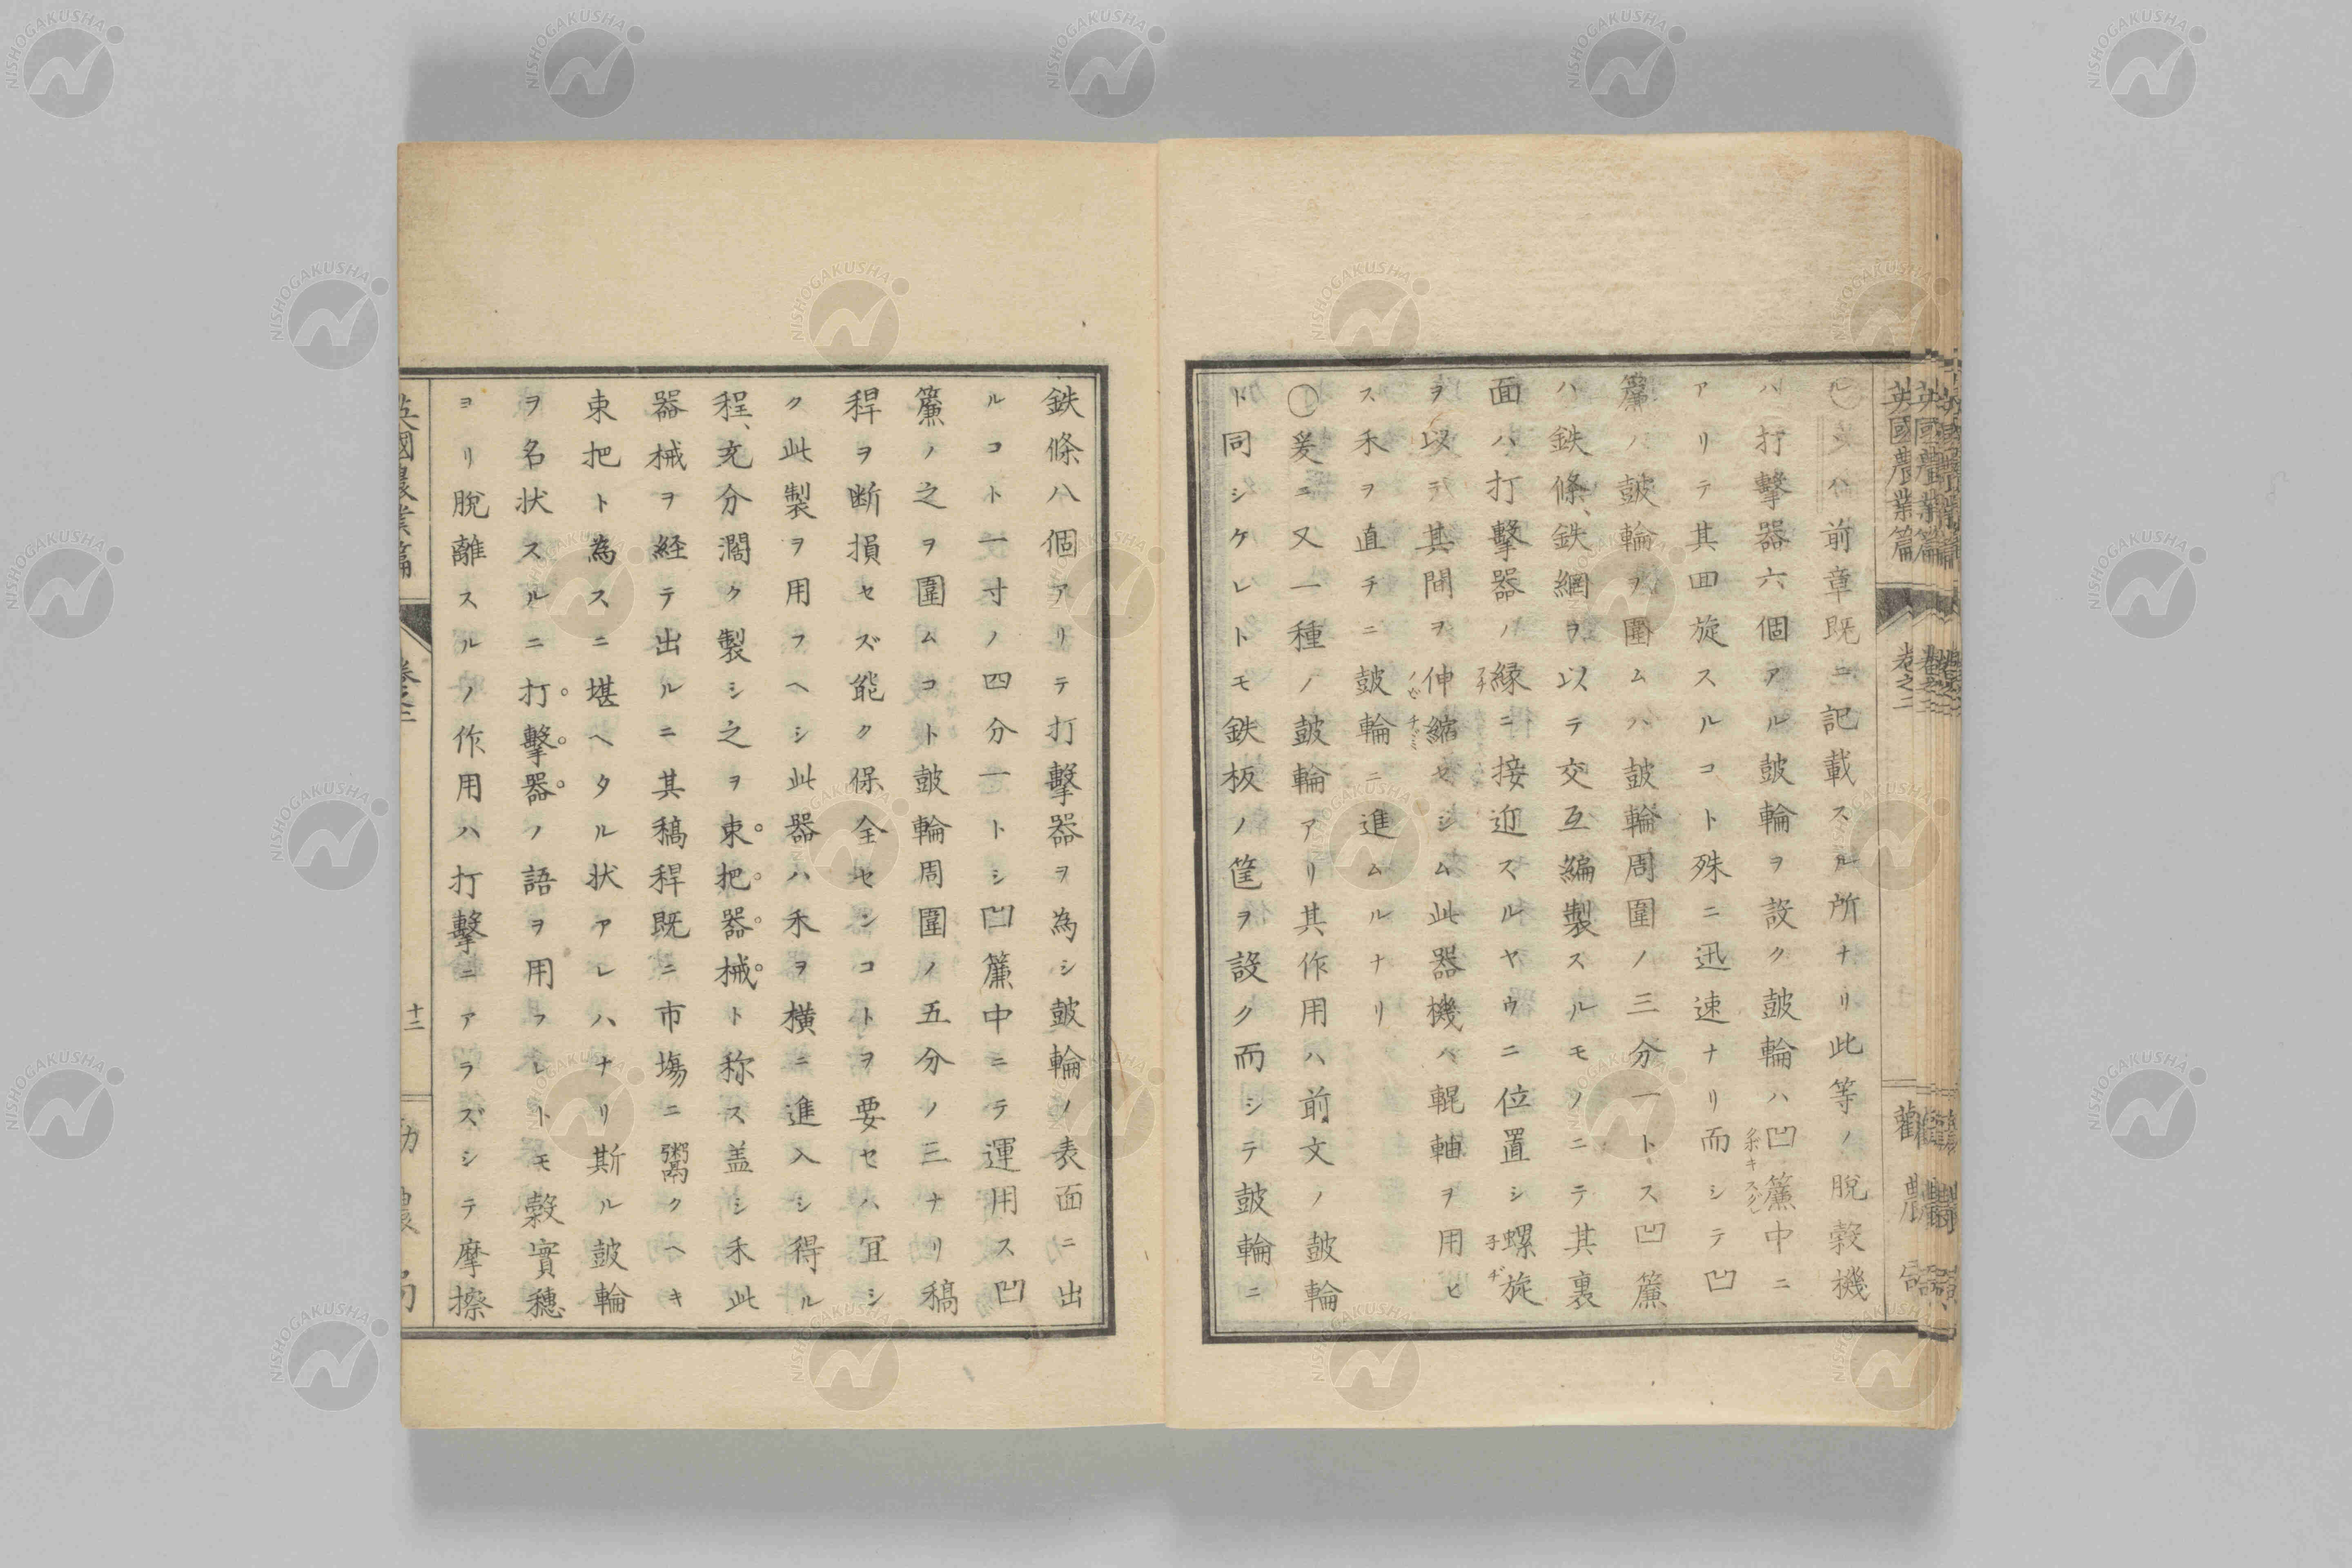 英國農業篇
卷之二
勸農局
ル 又ハ前章既ニ記載スル所ナリ此等ノ脫穀機
ハ打擊器六個アル皷輪ヲ設ク皷輪ハ凹簾中ニ
アリテ其回旋スルコト殊ニ迅速ナリ而シテ凹
簾ハ皷輪ヲ圍ムハ皷輪周圍ノ三分一トス凹簾
ハ鉄條、鉄網ヲ以テ交互編製スルモノニテ其裏
面ハ打擊器ノ縁ニ接近スルヤウニ位置シ螺旋
ヲ以テ其間ヲ伸縮セシム此器機ハ輥軸ヲ用ヒ
ス禾ヲ直チニ皷輪ニ進ムルナリ
○爰ニ又一種ノ皷輪アリ其作用ハ前文ノ皷輪
ト同シケレトモ鉄板ノ筐ヲ設ク而シテ皷輪ニ
鉄條八個アリテ打擊器ヲ為シ皷輪ノ表面ニ出
ルコト一寸ノ四分一トシ凹簾中ニテ運用ス凹
簾ノ之ヲ圍ムコト皷輪周圍ノ五分ノ三ナリ稿
稈ヲ断損セズ能ク保全センコトヲ要セハ冝シ
ク此製ヲ用フヘシ此器ハ禾ヲ横ニ進入シ得ル
程、充分濶ク製シ之ヲ束把器械ト称ス盖シ禾此
器械ヲ経テ出ルニ其稿稈既ニ市塲ニ鬻クヘキ
束把ト為スニ堪ヘタル状アレハナリ斯ル皷輪
ヲ名状スルニ打擊器ノ語ヲ用フレトモ穀實穗
ヨリ脫離スルノ作用ハ打擊ニアラズシテ摩擦
英國農業篇
卷之二
十二
勸農局
NISHOGAKUSHA